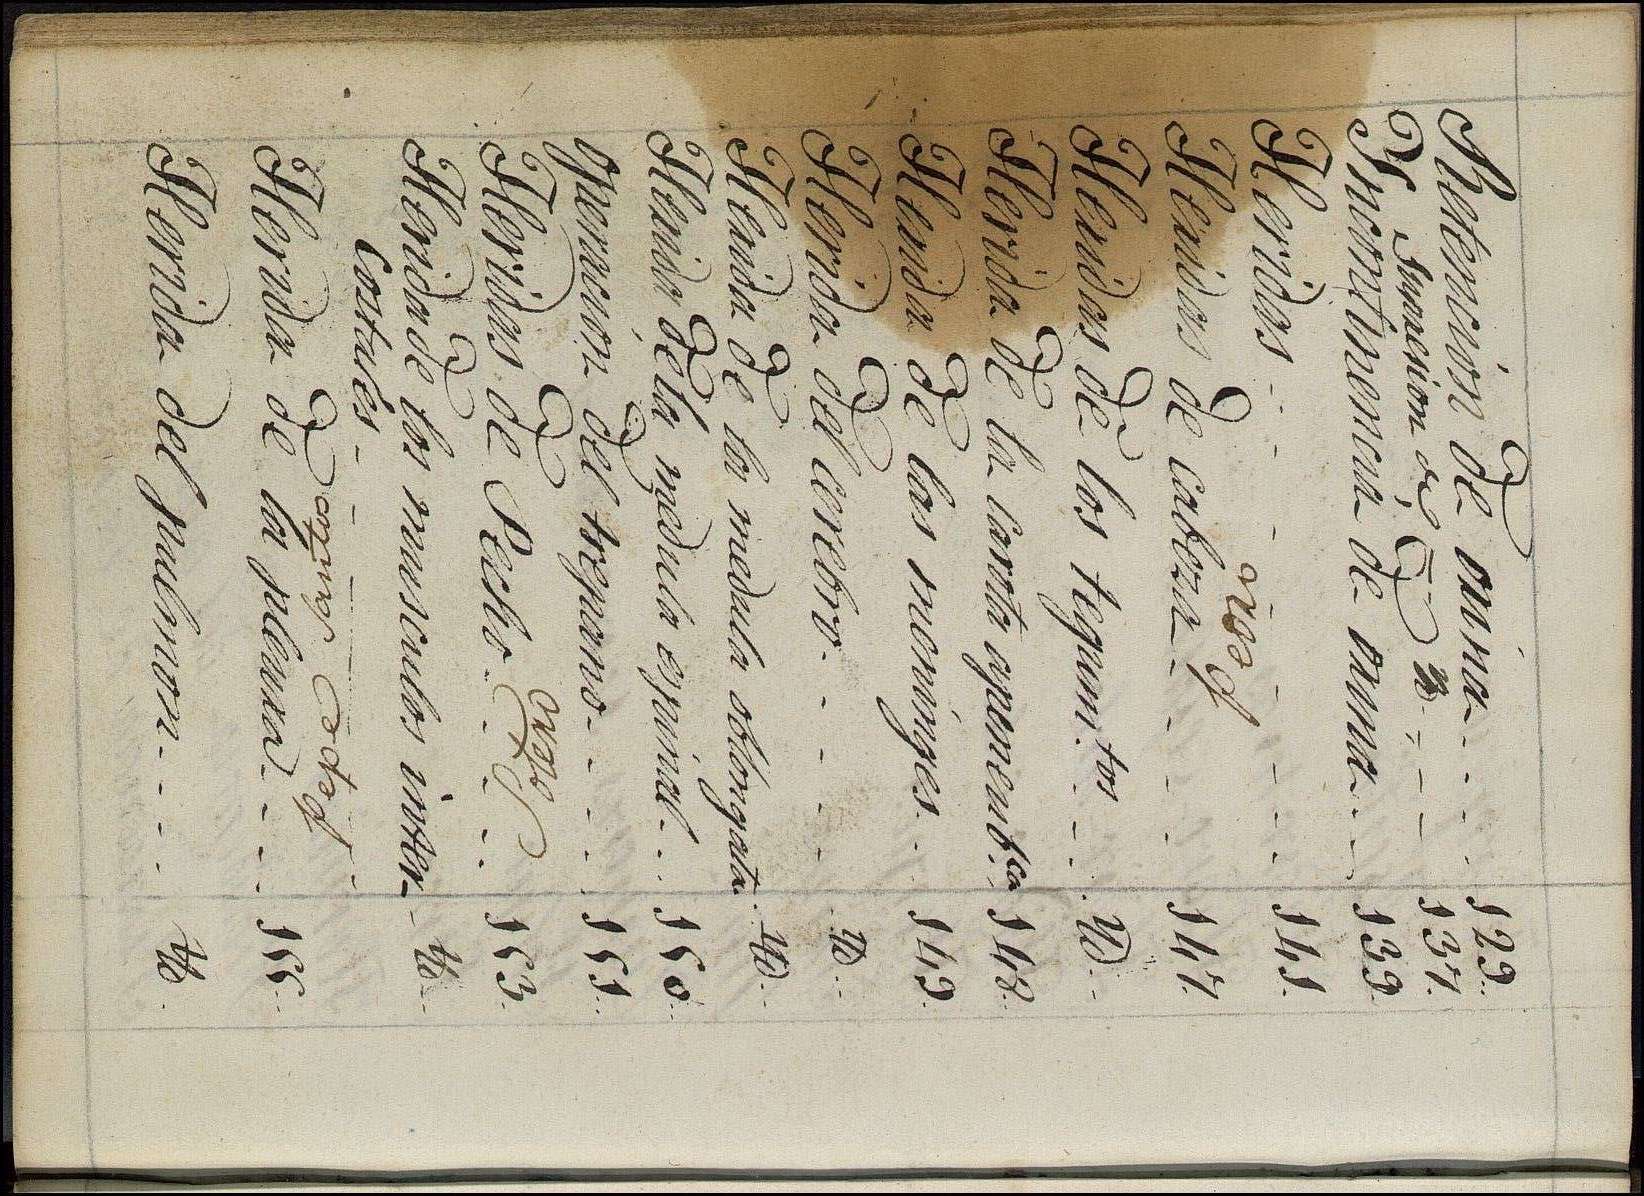 Retencion de orina - - - - 129.
Puncion del - - - 137.
Incontinencia de orina - - 139
Heridas - - - - - - 141.
Heridas de cabeza - - - - 147.
Heridas de los tegum.tos - - Yd.
Heridas de la carota aponeurot.ca 148.
Herida de las meninges. - - 149.
Herida del cerebro. - - - - Yd.
Herida de la medula oblongata. Yd.
Herida de la medula espinal. - - 150.
Operacion del trepano - - - - 151.
Heridas de Pecho - - - 153.
Herida de los musculos inter- Yd.
costales - - - - -
Herida de la pleura - - - 155.
Herida del pulmon - - - - Yd.